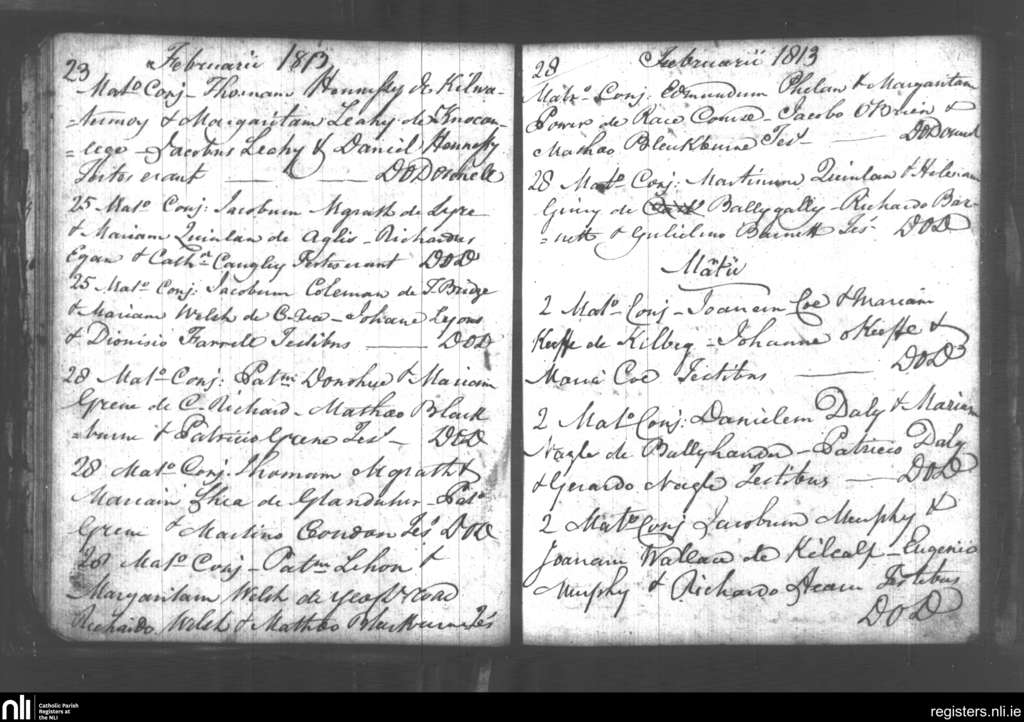 Februarii 1813
23
Mato Conj- Thomam Hennessy de Kilwa-
=termoy & Margaritam Leahy de Knocan-
=lege - Jacobus Leahy & Daniel Hennessy
Testes erant — — DODonnell
25 Mato Conj: Jacobum Mgrath de Lyre
& Mariam Quinlan de Aglis - Richardus
Egan & Cathn Cangley Testes erant DOD
25 Mato Conj: Jacobum Coleman de T. Bridge
& Mariam Welch de - Johane Lyons
& Dionisio Farrell Testibus — DOD
28 Mato Conj: Patm Donohue & Mariam
Grene de C. Richard - Matheo Black
=burne & Patricio Grene Tes - DOD
28 Mato Conj. Thomam Mgrath &
Mariam Shea de - Pato
Grene & Martino Condon Tes DOD
28 Mato Conj - Patm Lehon &
Margaritam Welsh de
Richardo Welsh & Matheo Blackburne Tes
Februarii 1813
28
Mato - Conj: Edmundum Phelan & Margaritam
Power de Race Course - Jacobo OBrien &
Matheo Bleuckburne Tes — DODonnell
28 Mato Conj: Martinum Quinlan & Helenam
Giniy de Ballygally - Richardo Bar-
=nett & Gulielmo Barnett Tes DOD
Martii
2 Mato Conj - Joanem Coe & Mariam
Keiffe de Kilbeg - Johanne oKeiffe &
Maria Coe Testibus — DOD
2 Mato Conj: Danielem Daly & Mariam
Nagle de Ballyhandu - Patricio Daly
& Gerardo Nagle Testibus — DOD
2 Mato Conj Jacobum Murphy &
Joanam Wallace de Kilcalf - Eugenio
Murphy & Richardo Hearn Testibus
DOD
nli
Catholic Parish
Registers at
the NLI
registers.nli.ie